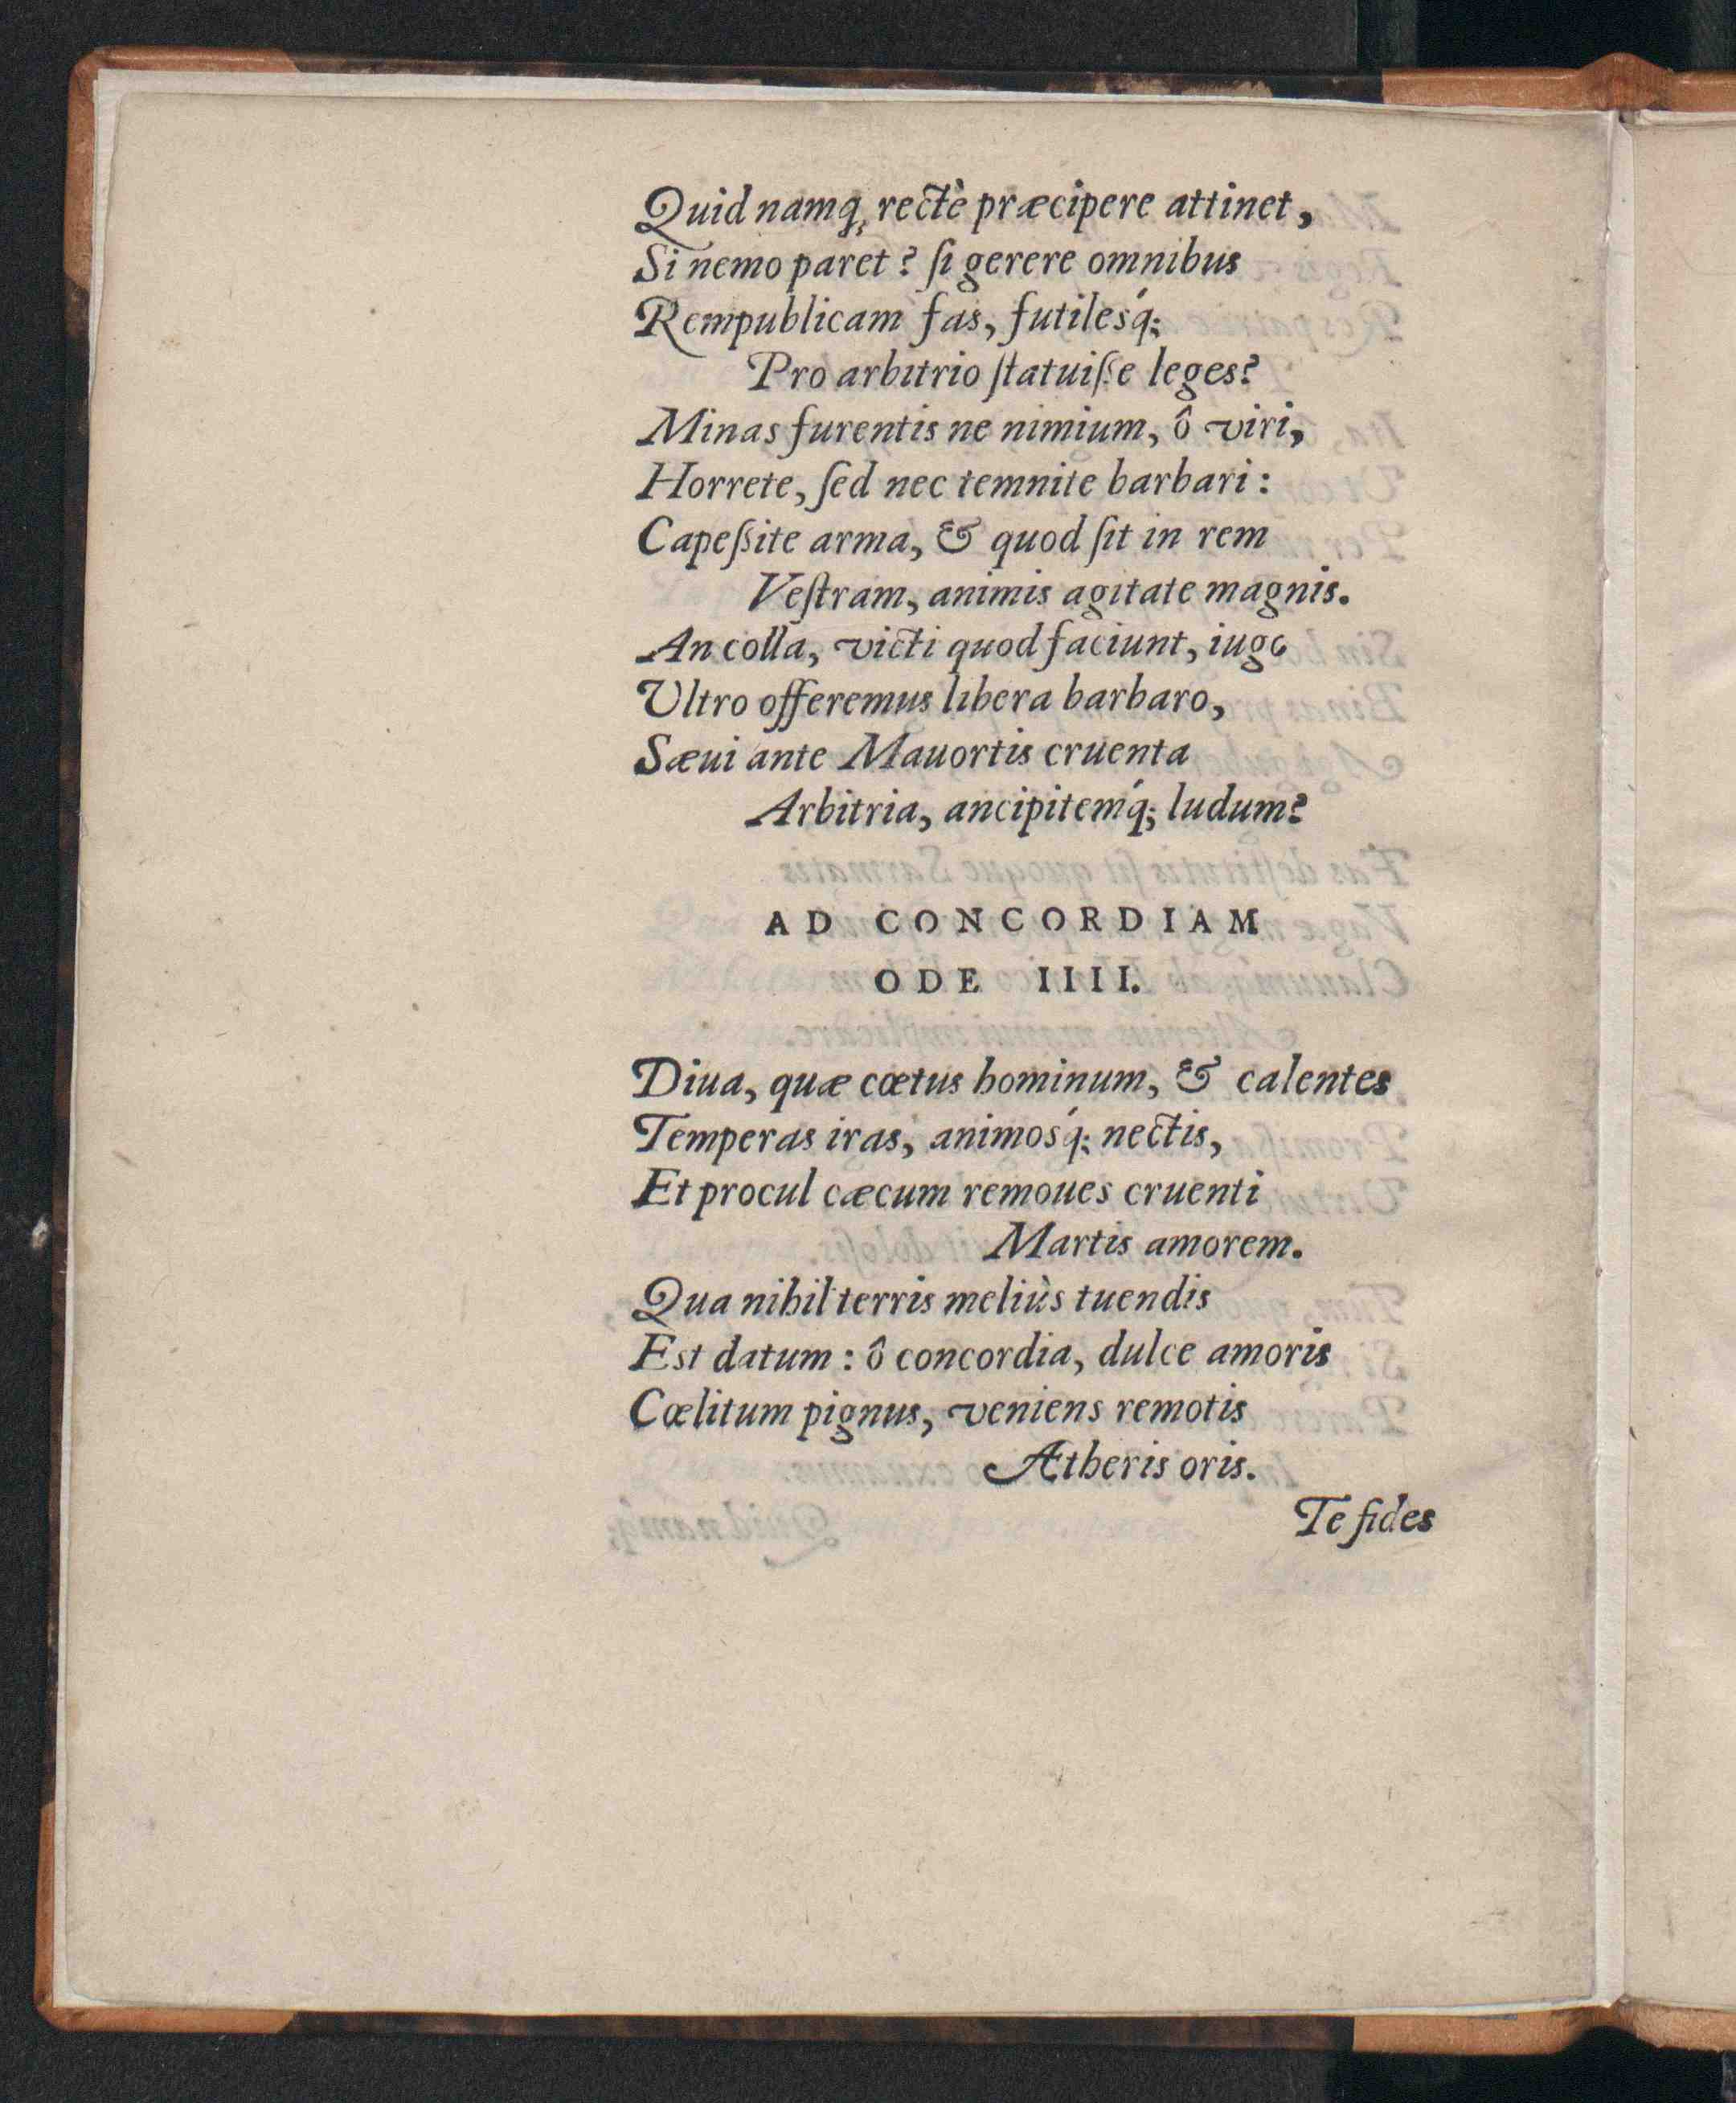 Quid namq́; rectè præcipere attinet,
Si nemo paret? ſi gerere omnibus
Rempublicam fas, futilesq́;
Pro arbitrio ſtatuiſſe leges?
Minas furentis ne nimium, ô viri,
Horrete, ſed nec temnite barbari:
Capeſſite arma, & quod ſit in rem
Veſtram, animis agitate magnis.
An colla, victi quod faciunt, iugo
Ultro offeremus libera barbaro,
Sæui ante Mauortis cruenta
Arbitria, ancipitemq́; ludum?
AD CONCORDIAM
ODE IIII.
Diua, quæ cœtus hominum, & calentes
Temperas iras, animosq́; nectis,
Et procul cæcum remoues cruenti
Martis amorem.
Qua nihil terris meliùs tuendis
Est datum: ô concordia, dulce amoris
Cœlitum pignus, veniens remotis
Ætheris oris.
Te fides